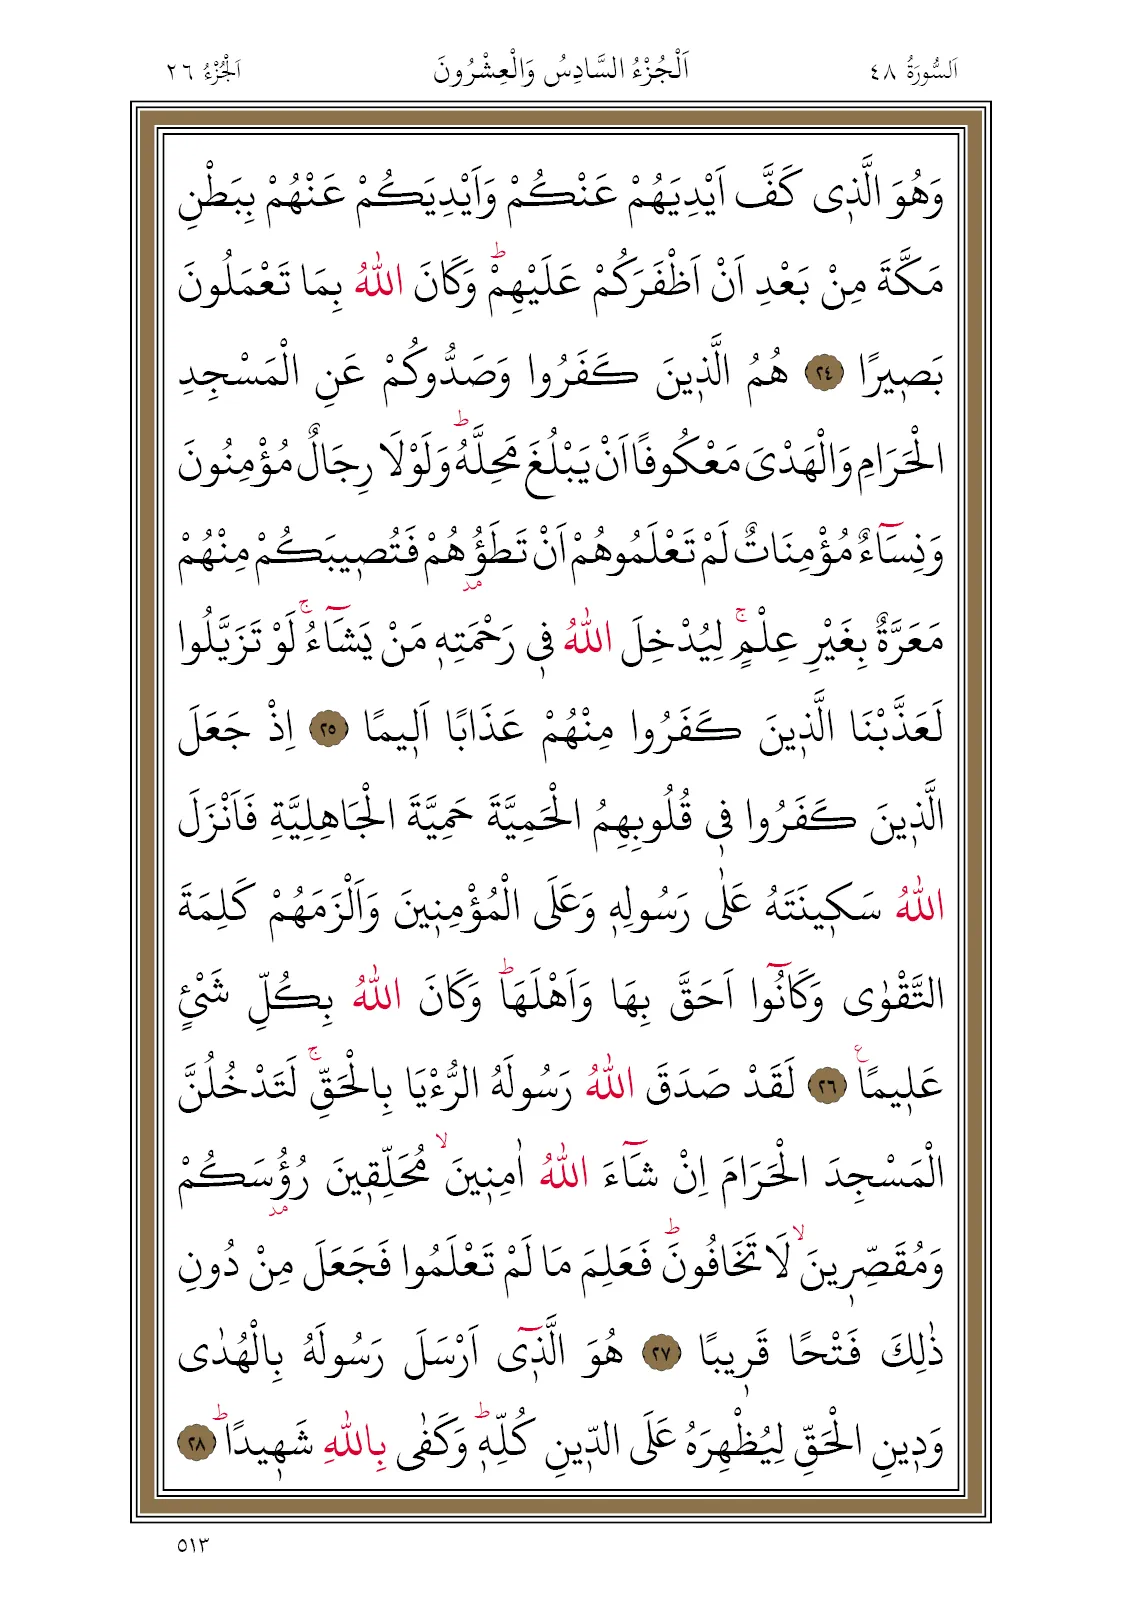 اَلسُّورَةُ ٤٨ اَلْجُزْءُ السَّادِسُ وَالْعِشْرُونَ اَلْجُزْءُ ٢٦
وَهُوَ الَّذ۪ى كَفَّ اَيْدِيَهُمْ عَنْكُمْ وَاَيْدِيَكُمْ عَنْهُمْ بِبَطْنِ
مَكَّةَ مِنْ بَعْدِ اَنْ اَظْفَرَكُمْ عَلَيْهِمْۜ وَكَانَ اللّٰهُ بِمَا تَعْمَلُونَ
بَص۪يرًا ﴿٢٤﴾ هُمُ الَّذ۪ينَ كَفَرُوا وَصَدُّوكُمْ عَنِ الْمَسْجِدِ
الْحَرَامِ وَالْهَدْىَ مَعْكُوفًا اَنْ يَبْلُغَ مَحِلَّهُۜ وَلَوْلَا رِجَالٌ مُؤْمِنُونَ
وَنِسَٓاءٌ مُؤْمِنَاتٌ لَمْ تَعْلَمُوهُمْ اَنْ تَطَؤُ۫هُمْ فَتُص۪يبَكُمْ مِنْهُمْ
مَعَرَّةٌ بِغَيْرِ عِلْمٍۚ لِيُدْخِلَ اللّٰهُ ف۪ى رَحْمَتِه۪ مَنْ يَشَٓاءُۚ لَوْ تَزَيَّلُوا
لَعَذَّبْنَا الَّذ۪ينَ كَفَرُوا مِنْهُمْ عَذَابًا اَل۪يمًا ﴿٢٥﴾ اِذْ جَعَلَ
الَّذ۪ينَ كَفَرُوا ف۪ى قُلُوبِهِمُ الْحَمِيَّةَ حَمِيَّةَ الْجَاهِلِيَّةِ فَاَنْزَلَ
اللّٰهُ سَك۪ينَتَهُ عَلٰى رَسُولِه۪ وَعَلَى الْمُؤْمِن۪ينَ وَاَلْزَمَهُمْ كَلِمَةَ
التَّقْوٰى وَكَانُٓوا اَحَقَّ بِهَا وَاَهْلَهَاۜ وَكَانَ اللّٰهُ بِكُلِّ شَىْءٍ
عَل۪يمًا۟ ﴿٢٦﴾ لَقَدْ صَدَقَ اللّٰهُ رَسُولَهُ الرُّءْيَا بِالْحَقِّۚ لَتَدْخُلُنَّ
الْمَسْجِدَ الْحَرَامَ اِنْ شَٓاءَ اللّٰهُ اٰمِن۪ينَۙ مُحَلِّق۪ينَ رُؤُ۫سَكُمْ
وَمُقَصِّر۪ينَۙ لَا تَخَافُونَۜ فَعَلِمَ مَا لَمْ تَعْلَمُوا فَجَعَلَ مِنْ دُونِ
ذٰلِكَ فَتْحًا قَر۪يبًا ﴿٢٧﴾ هُوَ الَّذ۪ٓى اَرْسَلَ رَسُولَهُ بِالْهُدٰى
وَد۪ينِ الْحَقِّ لِيُظْهِرَهُ عَلَى الدّ۪ينِ كُلِّه۪ۜ وَكَفٰى بِاللّٰهِ شَه۪يدًاۜ ﴿٢٨﴾
٥١٣